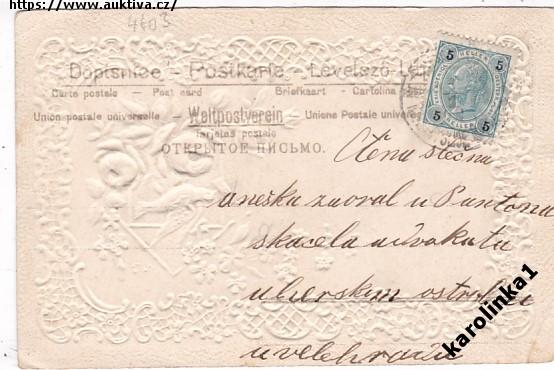 https://www.auktiva.cz/
4603
Dopisnice – Postkarte – Levelező
Carte postale – Post card – Briefkaart – Cartolina
Union postale universelle – Weltpostverein – Unione Postale univers
Tarjetas postale
ОТКРЫТОЕ ПИСЬМО.
5 HELLER 5
5 HELLER 5
Ctěná slečna
aneška zaoral u Pantona
skacela advokátu
uherskim ostrohu
u velehradu
karolinka1